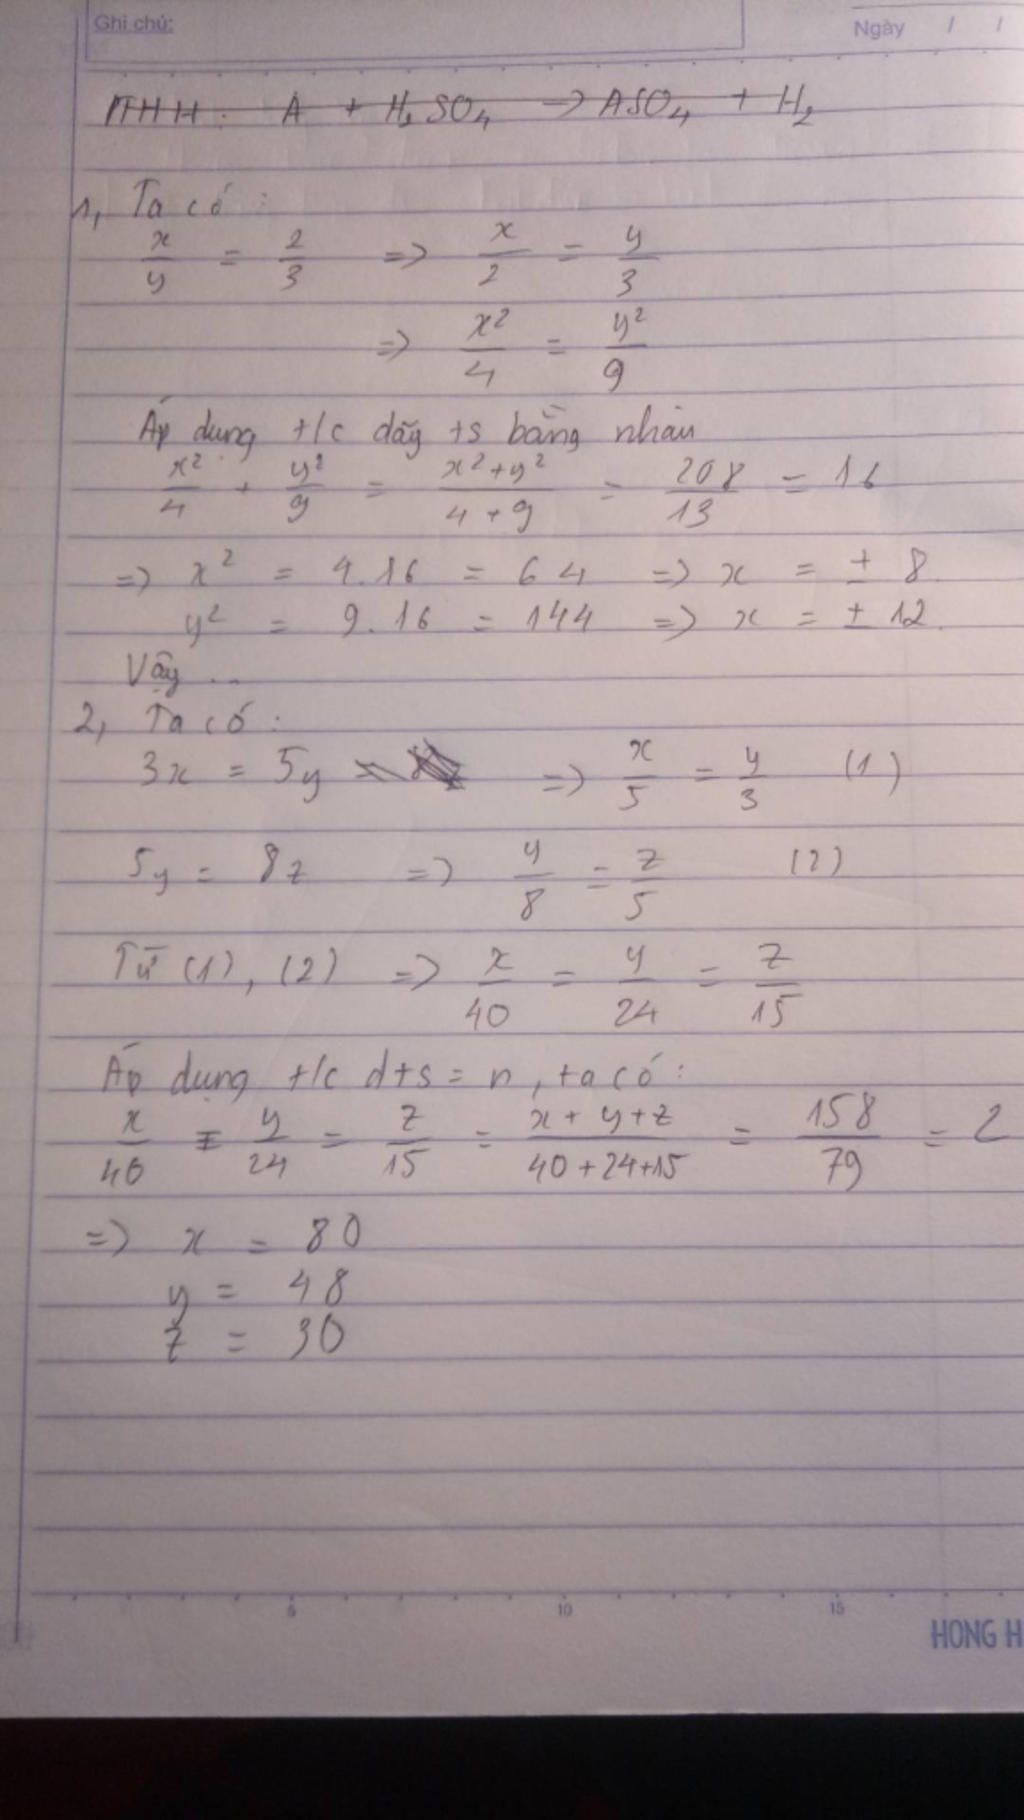 Ghi chú:
Ngày / /
PTHH: A + H₂SO₄ → ASO₄ + H₂
1, Ta có:
x/y = 2/3 => x/2 = y/3
=> x²/4 = y²/9
Áp dụng t/c dãy ts bằng nhau
x²/4 + y²/9 = x²+y²/4+9 = 208/13 = 16
=> x² = 4.16 = 64 => x = ± 8.
y² = 9.16 = 144 => x = ± 12.
Vậy ...
2, Ta có:
3x = 5y => x/5 = y/3 (1)
5y = 8z => y/8 = z/5 (2)
Từ (1), (2) => x/40 = y/24 = z/15
Áp dụng t/c dts = n, ta có:
x/40 = y/24 = z/15 = x+y+z/40+24+15 = 158/79 = 2
=> x = 80
y = 48
z = 30
5 10 15
HONG H